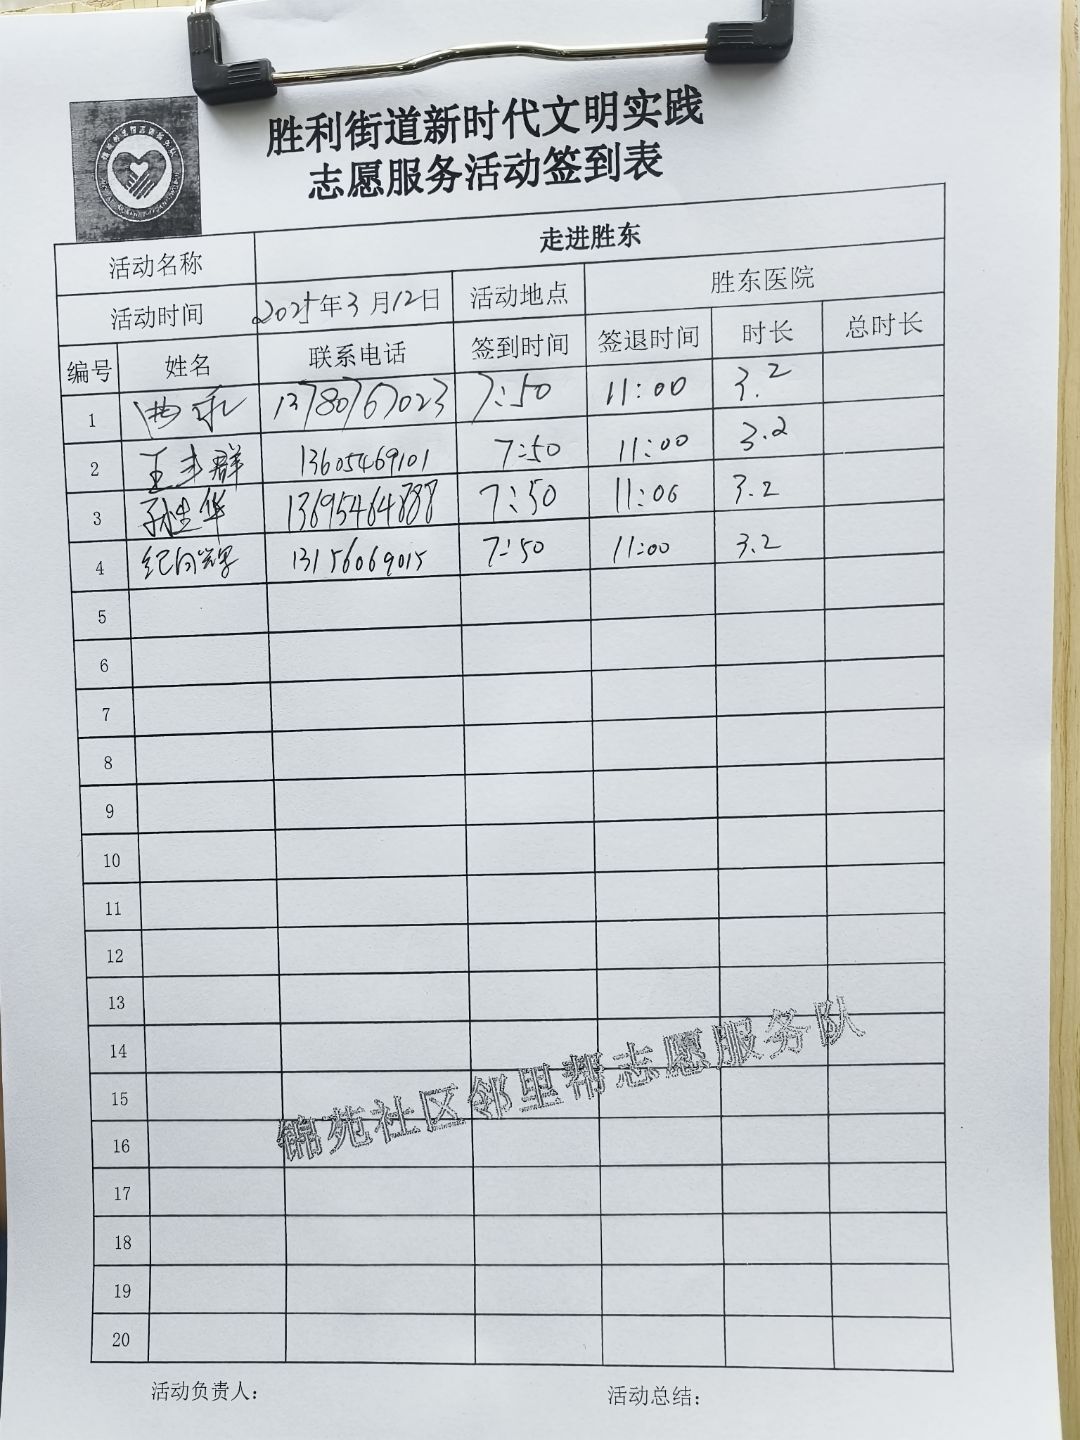 胜利街道新时代文明实践
志愿服务活动签到表
活动名称 走进胜东
活动时间 2025年3月12日 活动地点 胜东医院
编号 姓名 联系电话 签到时间 签退时间 时长 总时长
1 曲永 13780767023 7:50 11:00 3.2
2 王丰群 13605469101 7:50 11:00 3.2
3 孙生华 13695464888 7:50 11:00 3.2
4 纪向辉 13156069015 7:50 11:00 3.2
5
6
7
8
9
10
11
12
13
14
15
16
17
18
19
20
锦苑社区邻里帮志愿服务队
活动负责人：
活动总结：